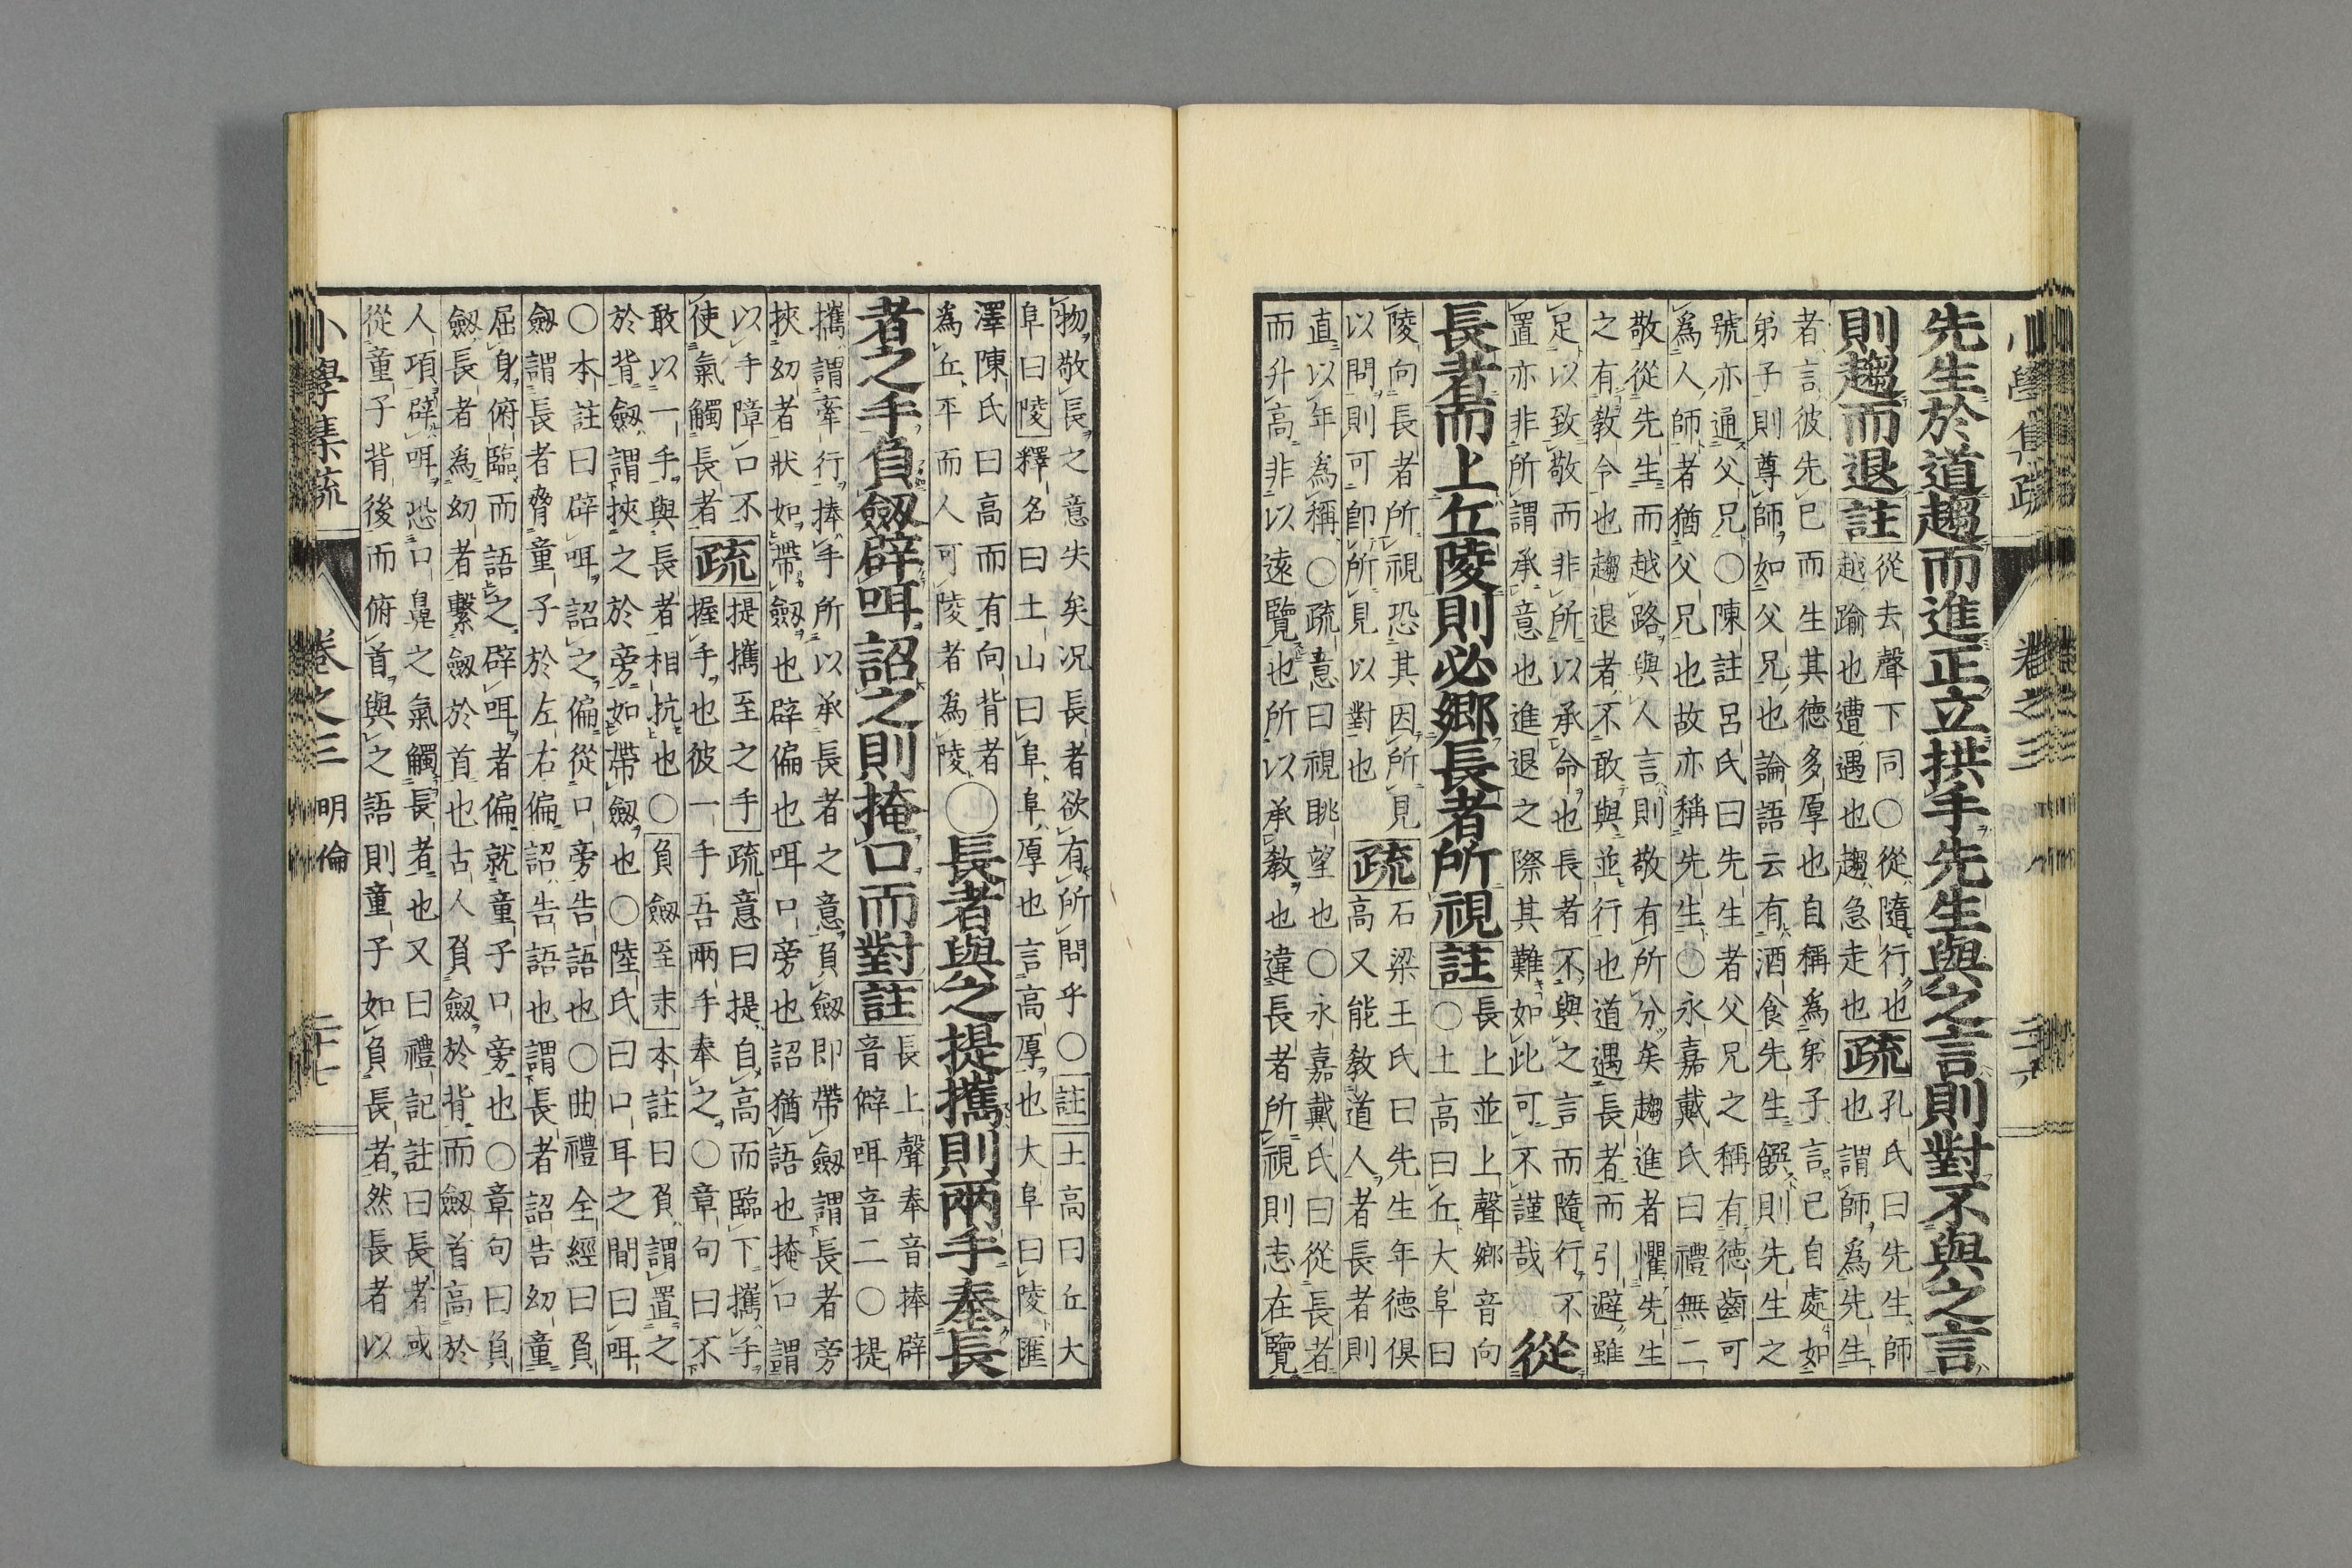 小學集疏 卷之三
先生於道趨而進正立拱手先生與之言則對不與之言
則趨而退註從去聲下同○從隨行也
越踰也遭遇也趨急走也疏孔氏曰先生師
也謂師爲先生
者言彼先已而生其徳多厚也自稱爲弟子言已自處如
弟子則尊師如父兄也論語云有酒食先生饌則先生之
號亦通父兄○陳註呂氏曰先生者父兄之稱有徳齒可
爲人師者猶父兄也故亦稱先生○永嘉戴氏曰禮無二
敬從先生而越路與人言則敬有所分矣趨進者懼先生
之有教令也趨退者不敢與並行也道遇長者而引避雖
足以致敬而非所以承命也長者不與之言而隨行不
置亦非所謂承意也進退之際其難如此可不謹哉從
長者而上丘陵則必郷長者所視註長上並上聲郷音向
○土高曰丘大阜曰
陵向長者所視恐其因所見
以問則可即所見以對也疏石梁王氏曰先生年徳俱
高又能教道人者長者則
直以年為稱○疏意曰視眺望也○永嘉戴氏曰從長者
而升高非以遠覽也所以承教也違長者所視則志在覽
物敬長之意失矣況長者欲有所問乎○註土高曰丘大
阜曰陵釋名曰土山曰阜阜厚也言高厚也大阜曰陵匯
澤陳氏曰高而有向背者
為丘平而人可陵者為陵○長者與之提攜則兩手奉長
者之手負劔辟咡詔之則掩口而對註長上聲奉音捧辟
音僻咡音二○提
攜謂牽行捧手所以承長者之意負劔即帶劔謂長者旁
挾幼者狀如帶劔也辟偏也咡口旁也詔猶語也掩口謂
以手障口不
使氣觸長者疏提攜至之手疏意曰提自高而臨下攜手
握手也彼一手吾兩手奉之○章句曰不
敢以一手與長者相抗也○負劔至末本註曰負謂置之
於背劔謂挾之於旁如帶劔也○陸氏曰口耳之間曰咡
○本註曰辟咡詔之偏從口旁告語也○曲禮全經曰負
劔謂長者脅童子於左右偏詔告語也謂長者詔告幼童
屈身俯臨而語之辟咡者偏就童子口旁也○章句曰負
劔長者為幼者繫劔於首也古人負劔於背而劔首高於
人項辟咡恐口鼻之氣觸長者也又曰禮記註曰長者或
從童子背後而俯首與之語則童子如負長者然長者以
小學集疏 卷之三 明倫 二十七